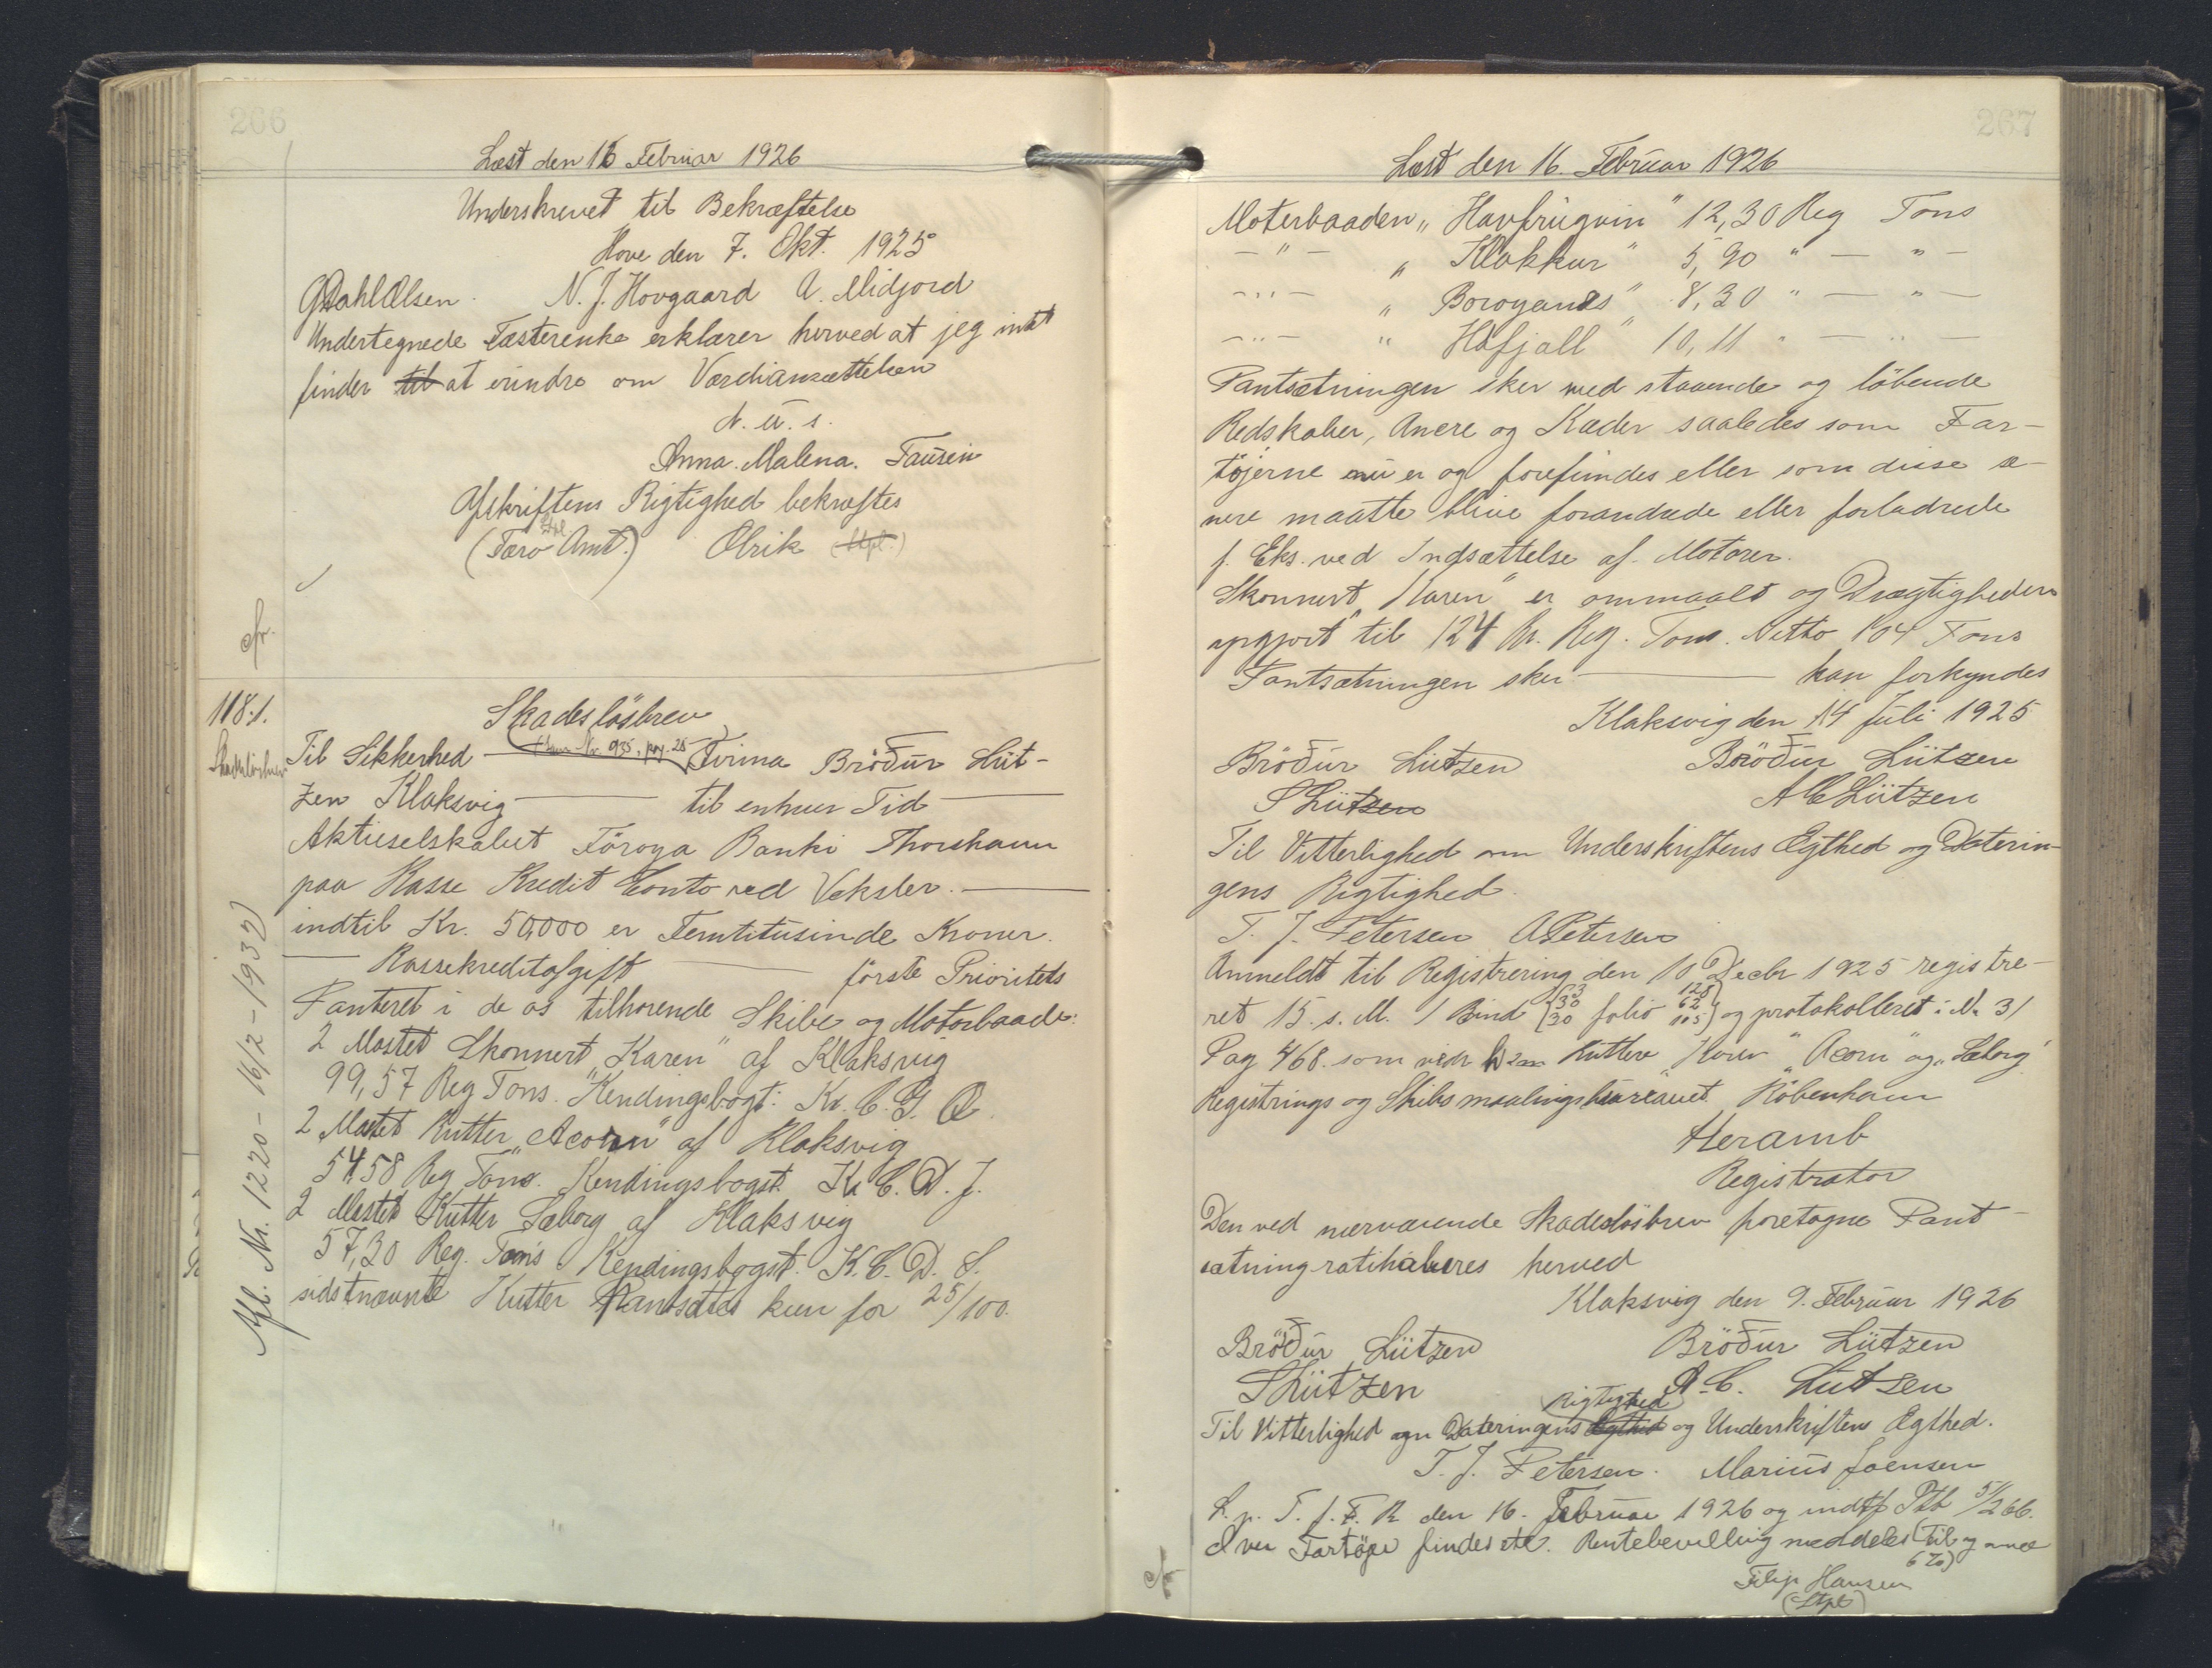 266
Læst den 16 Februar 1926
Underskrevet til Bekræftelse
Hove den 7. Okt. 1925
G Dahl Olsen. N. J. Hovgaard A. Midjord
Undertegnede Fæsterenke erklærer herved at jeg intet
finder til at erindre om Værdiansættelsen
d. u. s.
Anna. Malena. Fausen
Afskriftens Rigtighed bekræftes
(Færø Stpl Amt.) Olrik (Stpl.)
cfr.
118:1.
Skadesløsbrev
Skadeslösbrev
Til Sikkerhed — 935, pag. 25 Firma Bröđur Lüt-
zen Klaksvig — til enhver Tid —
Aktieselskabet Föroya Banki Thorshavn
paa Kasse Kredit Conto ved Veksler. —
indtil Kr. 50,000 er Femtitusinde Kroner.
— Kassekreditafgift — förste Prioritets
Panteret i de os tilhorende Skibe og Motorbaade:
2 Mastet Skonnert „Karen" af Klaksvig
99,57 Reg Tons. Kendingsbogt: K. C. G. Q.
2 Mastet Kutter „Acorn" af Klaksvig
54,58 Reg Tons. Kendingsbogst. K. C. D. J.
2 Mastet Kutter Sæborg af Klaksvig
57,30 Reg. Tons Kendingsbogst. K. C. D. S.
sidstnævnte Kutter Pantsættes kun for 25/100.
Afl. Nr. 1220 - 16/2 - 1937)
267
Læst den 16. Februar 1926
Moterbaaden „Havfrugvin" 12,30 Reg Tons
— " — „ Klakkur" 5,90 " — " —
— " — „ Boroyanes" 8,30 " — " —
— " — „ Háfjall" 10,11 " — " —
Pantsætningen sker med staaende og löbende
Redskaber, Ancre og Kæder saaledes som Far-
töjerne nu er og forefindes eller som disse se-
nere maatte blive forandrede eller forbedrede
f. Eks. ved Indsættelse af Motorer.
Skonnert „Karen" er ommaalt og Drægtigheden
opgjort til 124 Br. Reg. Tons. Netto 104 Tons
Pantsætningen sker — kan forkyndes
Klaksvig den 14 Juli 1925
Bröđur Lützen Bröđur Lützen
S Lützen A C Lützen
Til Vitterlighed om Underskriftens Ægthed og Daterin-
gens Rigtighed.
T. J. Petersen A Petersen
Anmeldt til Registrering den 10 Decbr 1925 registre-
ret 15. s. M. 1 Bind {33 30 30 folio 128 62 105} og protokolleret i N. 31
Pag 468. som Kuttere „Acorn" og „Sæborg"
Registrings og Skibsmaalingsbureauet Köbenhavn
Heramb
Registrator
Den ved nærværende Skadeslösbrev foretagne Pant-
sætning ratihaberes herved
Klaksvig den 9. Februar 1926
Bröđur Lützen Bröđur Lützen
S Lützen A. C. Lützen
Rigtighed
Til Vitterlighed om Dateringens Ægthed og Underskriftens Ægthed.
T. J. Petersen. Marius Joensen
L. p. T. f. F. R. den 16. Februar 1926 og indf Ptb 5/266.
Over Fartöje findes etc. Rentebevilling meddeles (til og med
6 %)
Filip Hansen
(Stpl)
cfr